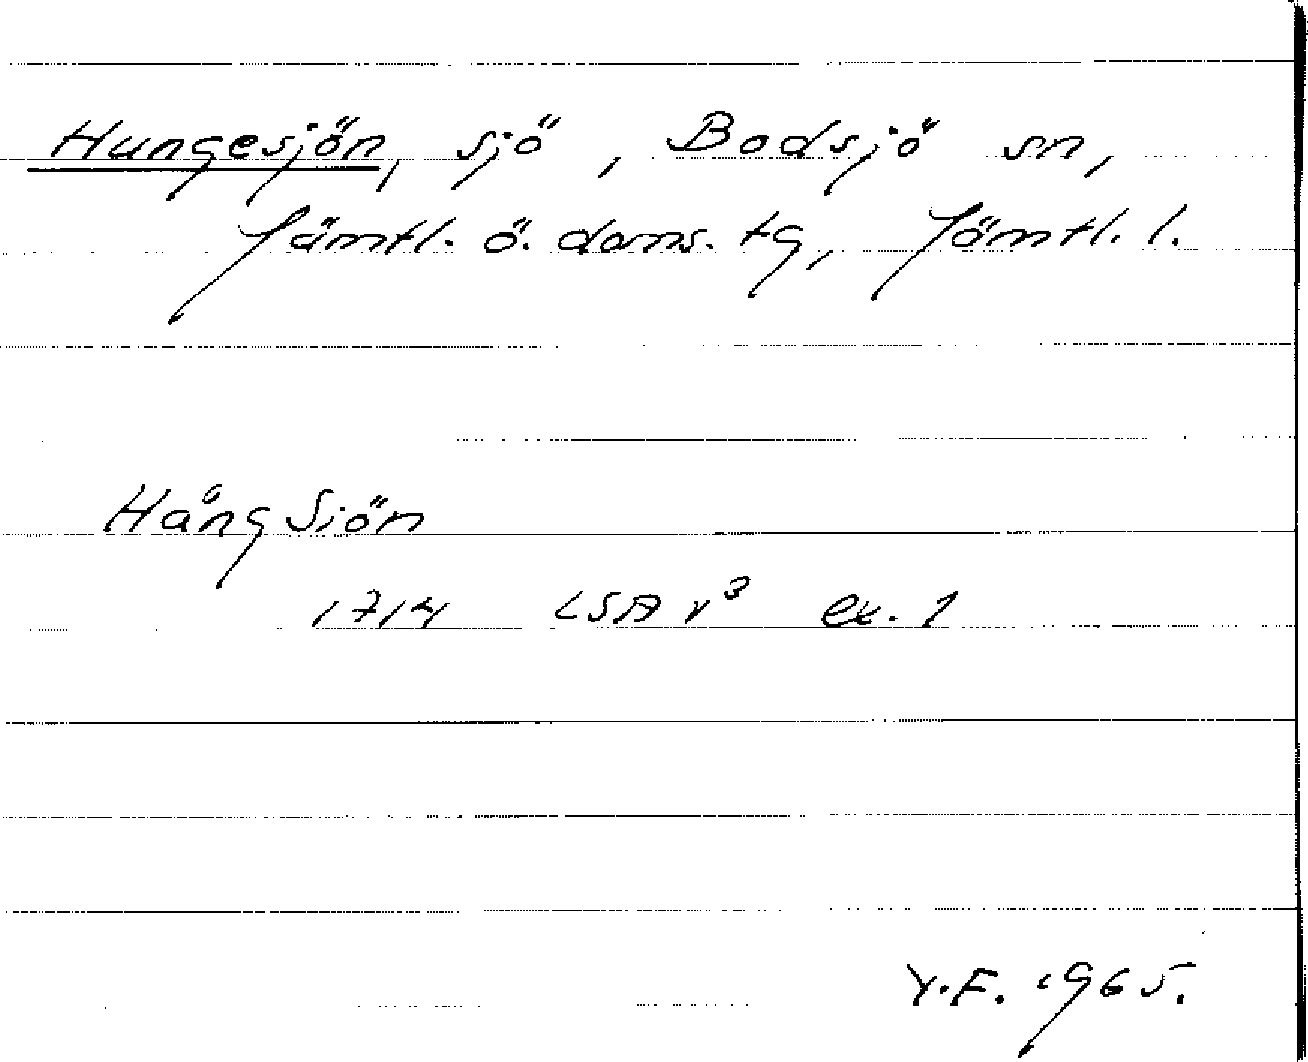 Hungesjön, sjö, Bodsjö sn,
Jämtl. ö. doms. tg, Jämtl. l.
Hång Siön
1714 LSA r³ ex. 1
Y.F. 1965.